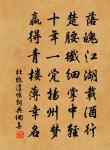 落魄江湖載酒行
楚腰纖細掌中輕
十年一覺揚州夢
贏得青樓薄幸名
杜牧遣懷詞典網書